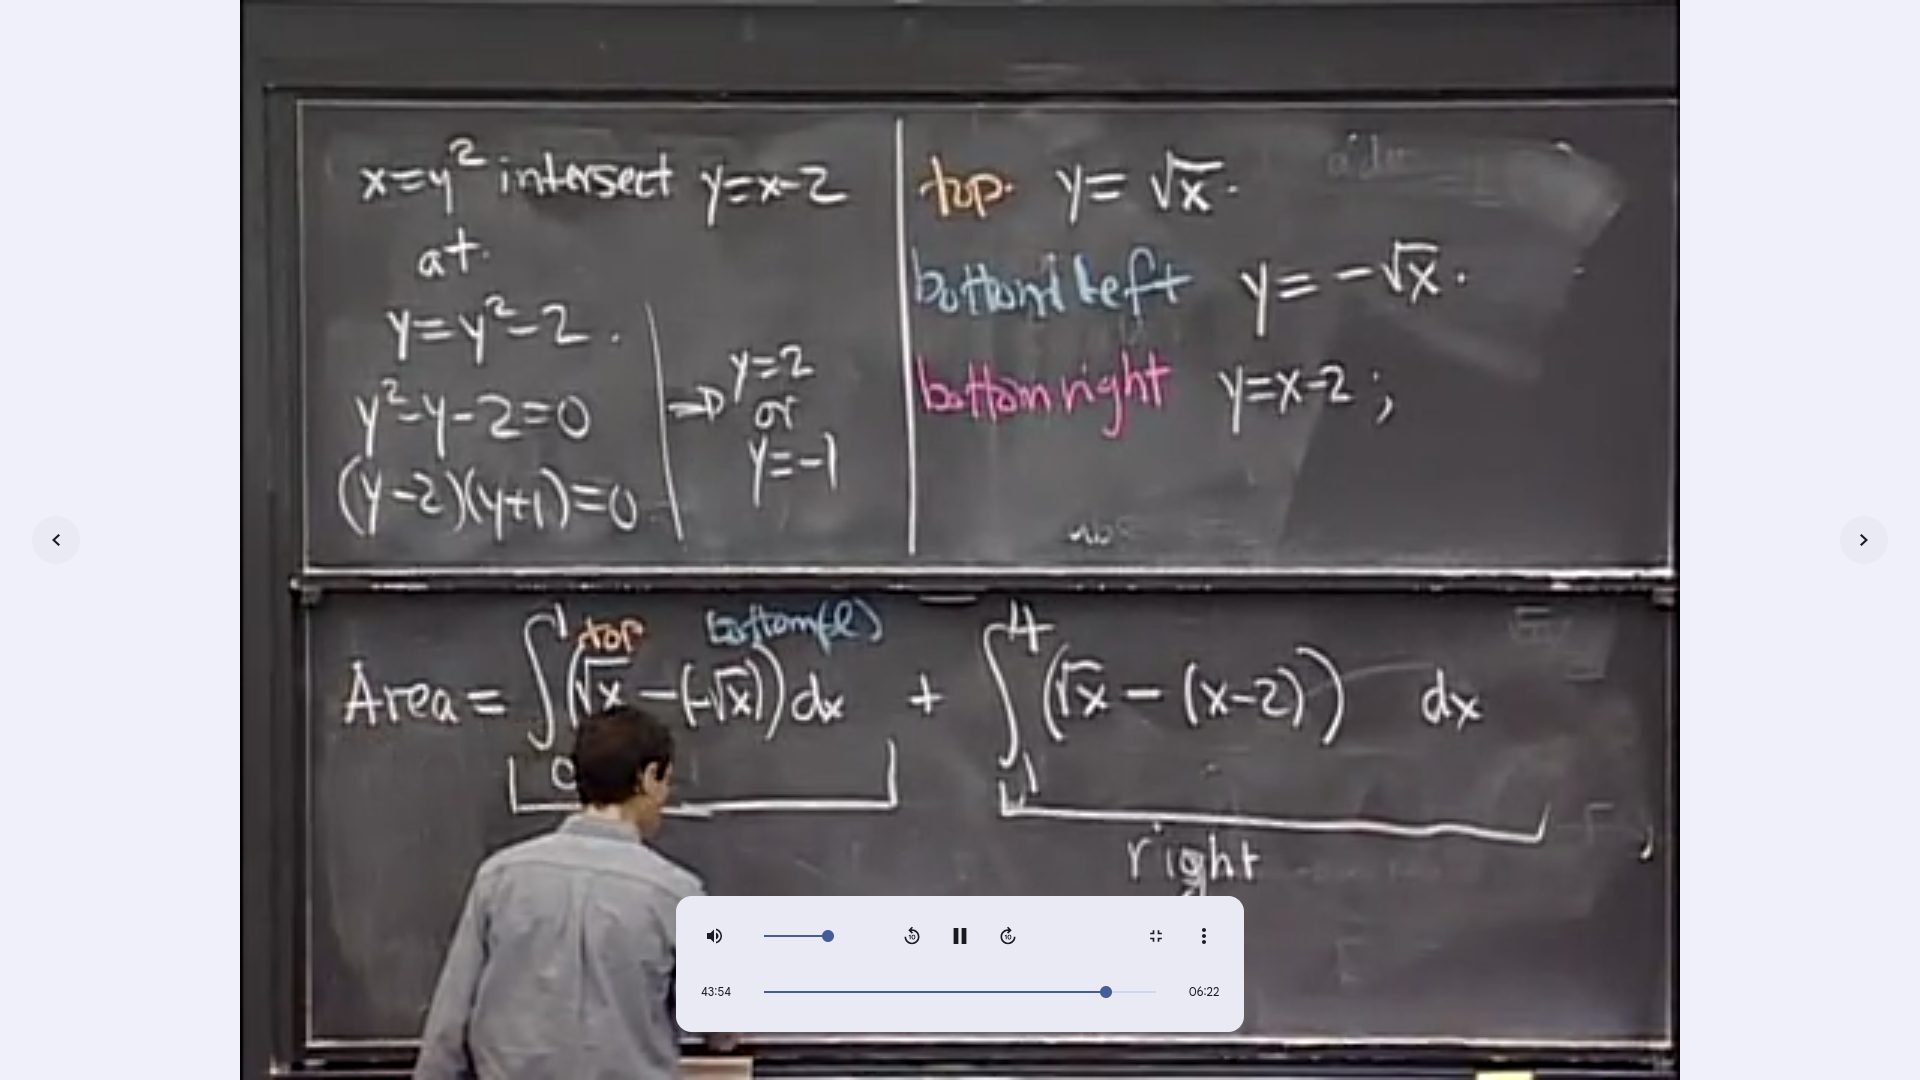 x=y² intersect y=x-2
at
y=y²-2.
y²-y-2=0
(y-2)(y+1)=0
→ y=2
or
y=-1
top y=√x.
bottom left y=-√x.
bottom right y=x-2;
top bottom(l)
Area = ∫₀¹(√x-(-√x))dx + ∫₁⁴(√x-(x-2)) dx
right
10 10
43:54 06:22